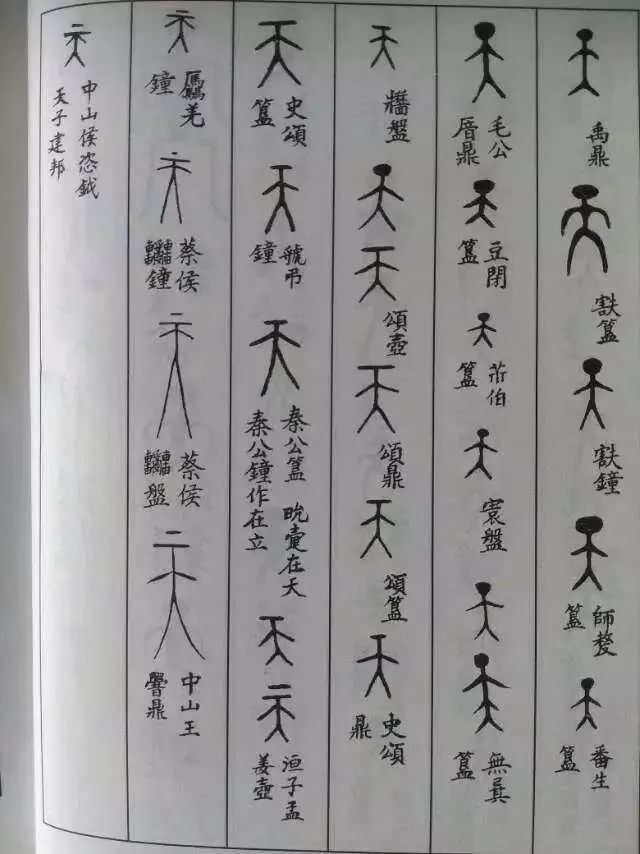 禹鼎
㝬簋
㝬鐘
師
簋
番生
簋
毛公
厝鼎
豆閉
簋
伯
簋
寰盤
無㠱
簋
牆盤
頌壺
頌鼎
頌簋
史頌
鼎
史頌
簋
虢弔
鐘
秦公簋 畯疐在天
秦公鐘作在立
洹子孟
姜壺
羌
鐘
蔡侯
鐘
蔡侯
盤
中山王
鼎
中山侯恣鉞
天子建邦